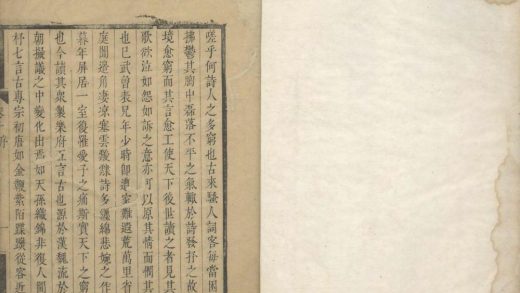 嗟乎何詩人之多窮也古來騷人詞客每當困
拂鬱其胸中磊落不平之氣輒於詩發抒之故
境愈窮而其言愈工使天下後世讀之者見其
歌欲泣如怨如訴之意亦可以原其情而憫其
也已武曾表兄年少時即遭室難遐荒萬里省
庭闈邊角凄涼塞雲黯淡詩多纏綿悲婉之作
暮年屏居一室後罹愛子之痛斯實天下之窮
也今讀其眾製樂府五言古也源於漢魏流於
朝撮讖之中變化出焉如天孫織錦非復人間
杼七言古專宗初唐如金鞭紫陌蹀躞從容近